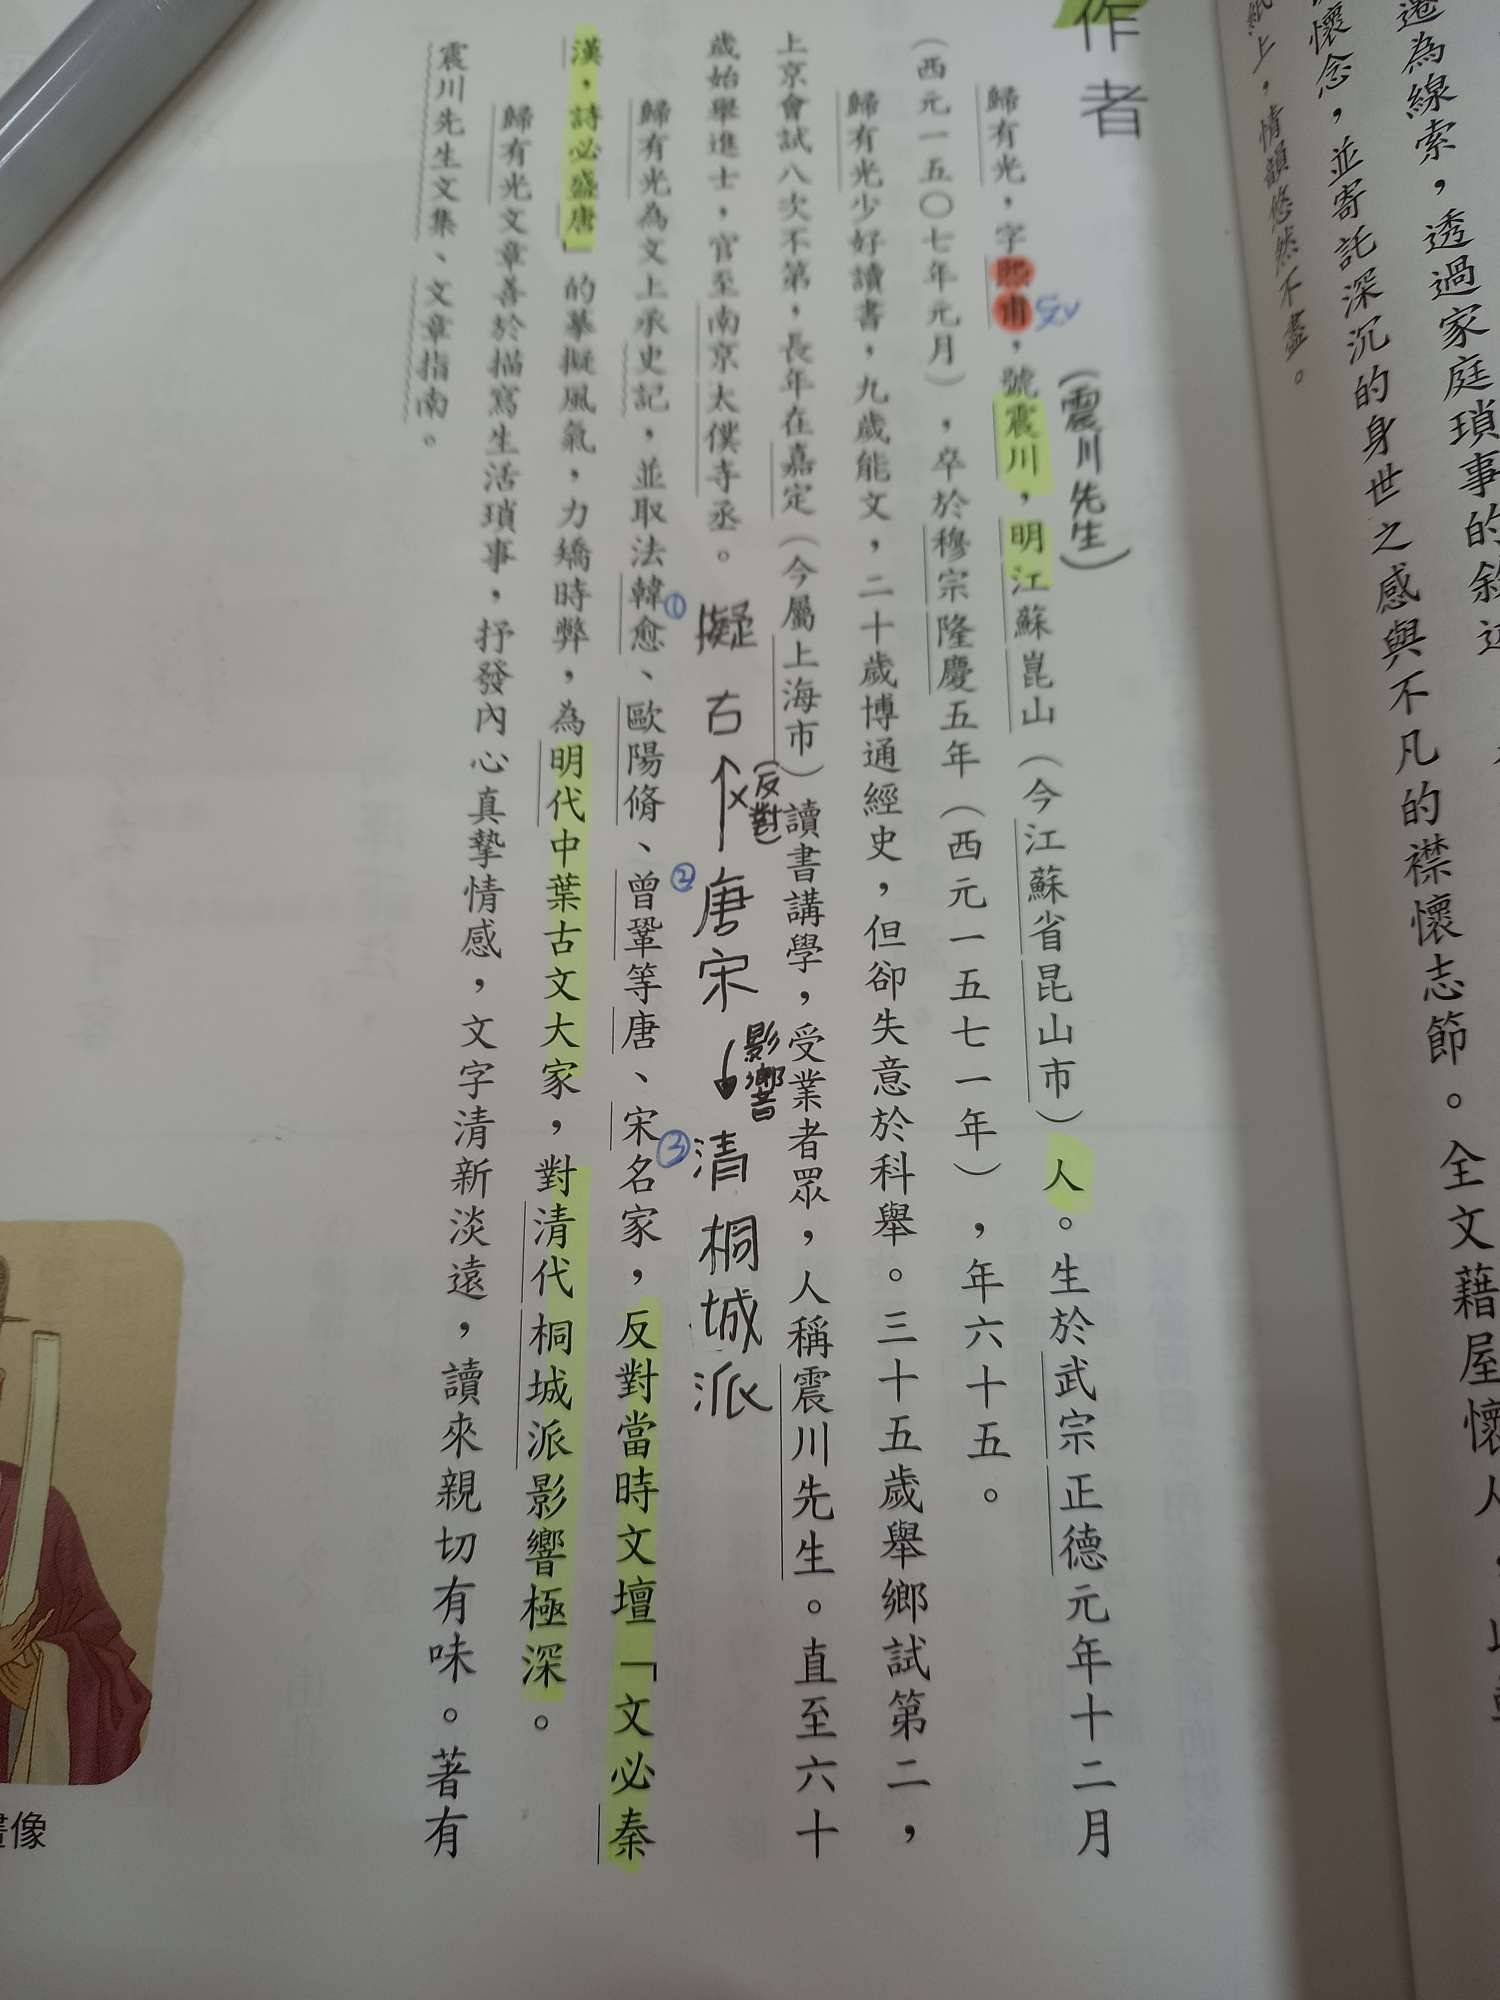 遷為線索，透過家庭瑣事的敘
懷念，並寄託深沉的身世之感與不凡的襟懷志節。全文藉屋懷人，
紙上，情韻悠然不盡。
作者
（震川先生）
歸有光，字熙甫，號震川，明江蘇崑山（今江蘇省昆山市）人。生於武宗正德元年十二月
ㄈㄨˇ
（西元一五〇七年元月），卒於穆宗隆慶五年（西元一五七一年），年六十五。
歸有光少好讀書，九歲能文，二十歲博通經史，但卻失意於科舉。三十五歲舉鄉試第二，
上京會試八次不第，長年在嘉定（今屬上海市）讀書講學，受業者眾，人稱震川先生。直至六十
歲始舉進士，官至南京太僕寺丞。
①擬古
（反對）
②唐宋
影響
③清桐城派
歸有光為文上承史記，並取法韓愈、歐陽脩、曾鞏等唐、宋名家，反對當時文壇「文必秦
漢，詩必盛唐」的摹擬風氣，力矯時弊，為明代中葉古文大家，對清代桐城派影響極深。
歸有光文章善於描寫生活瑣事，抒發內心真摯情感，文字清新淡遠，讀來親切有味。著有
震川先生文集、文章指南。
畫像